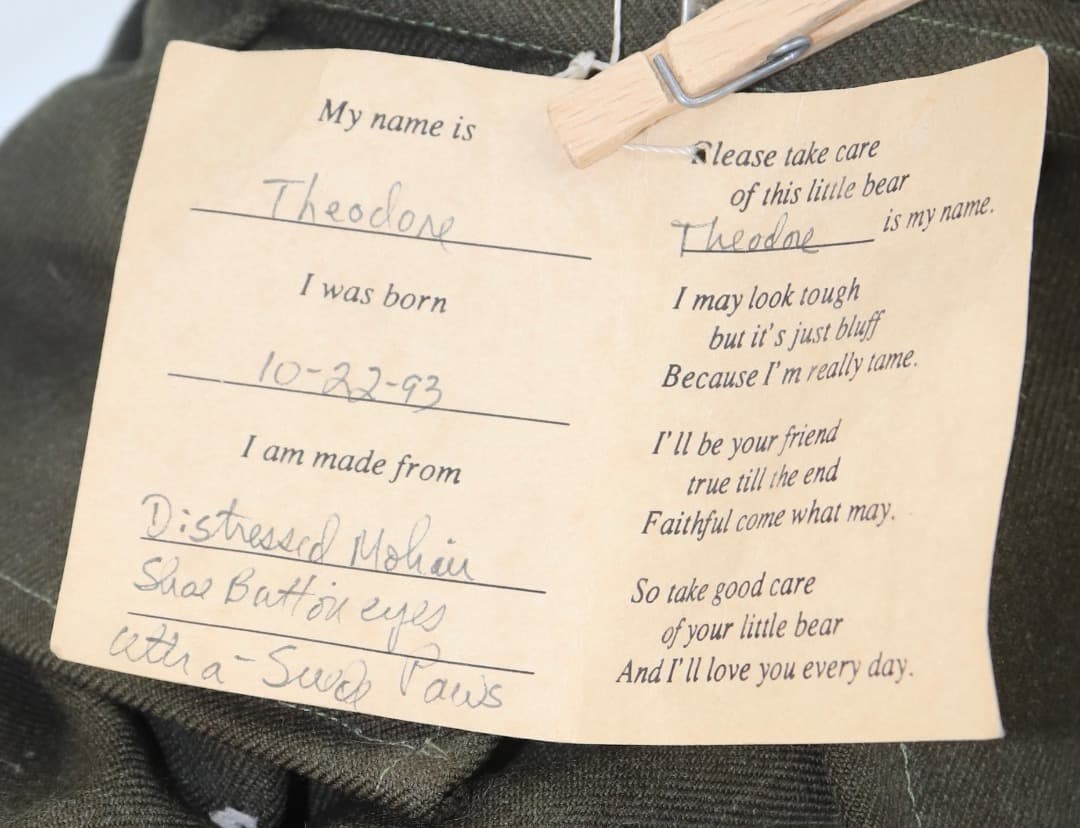 My name is
Theodore
I was born
10-22-93
I am made from
Distressed Mohair
Shoe Button eyes
ultra-Suede Paws
Please take care
of this little bear
Theodore is my name.
I may look tough
but it's just bluff
Because I'm really tame.
I'll be your friend
true till the end
Faithful come what may.
So take good care
of your little bear
And I'll love you every day.